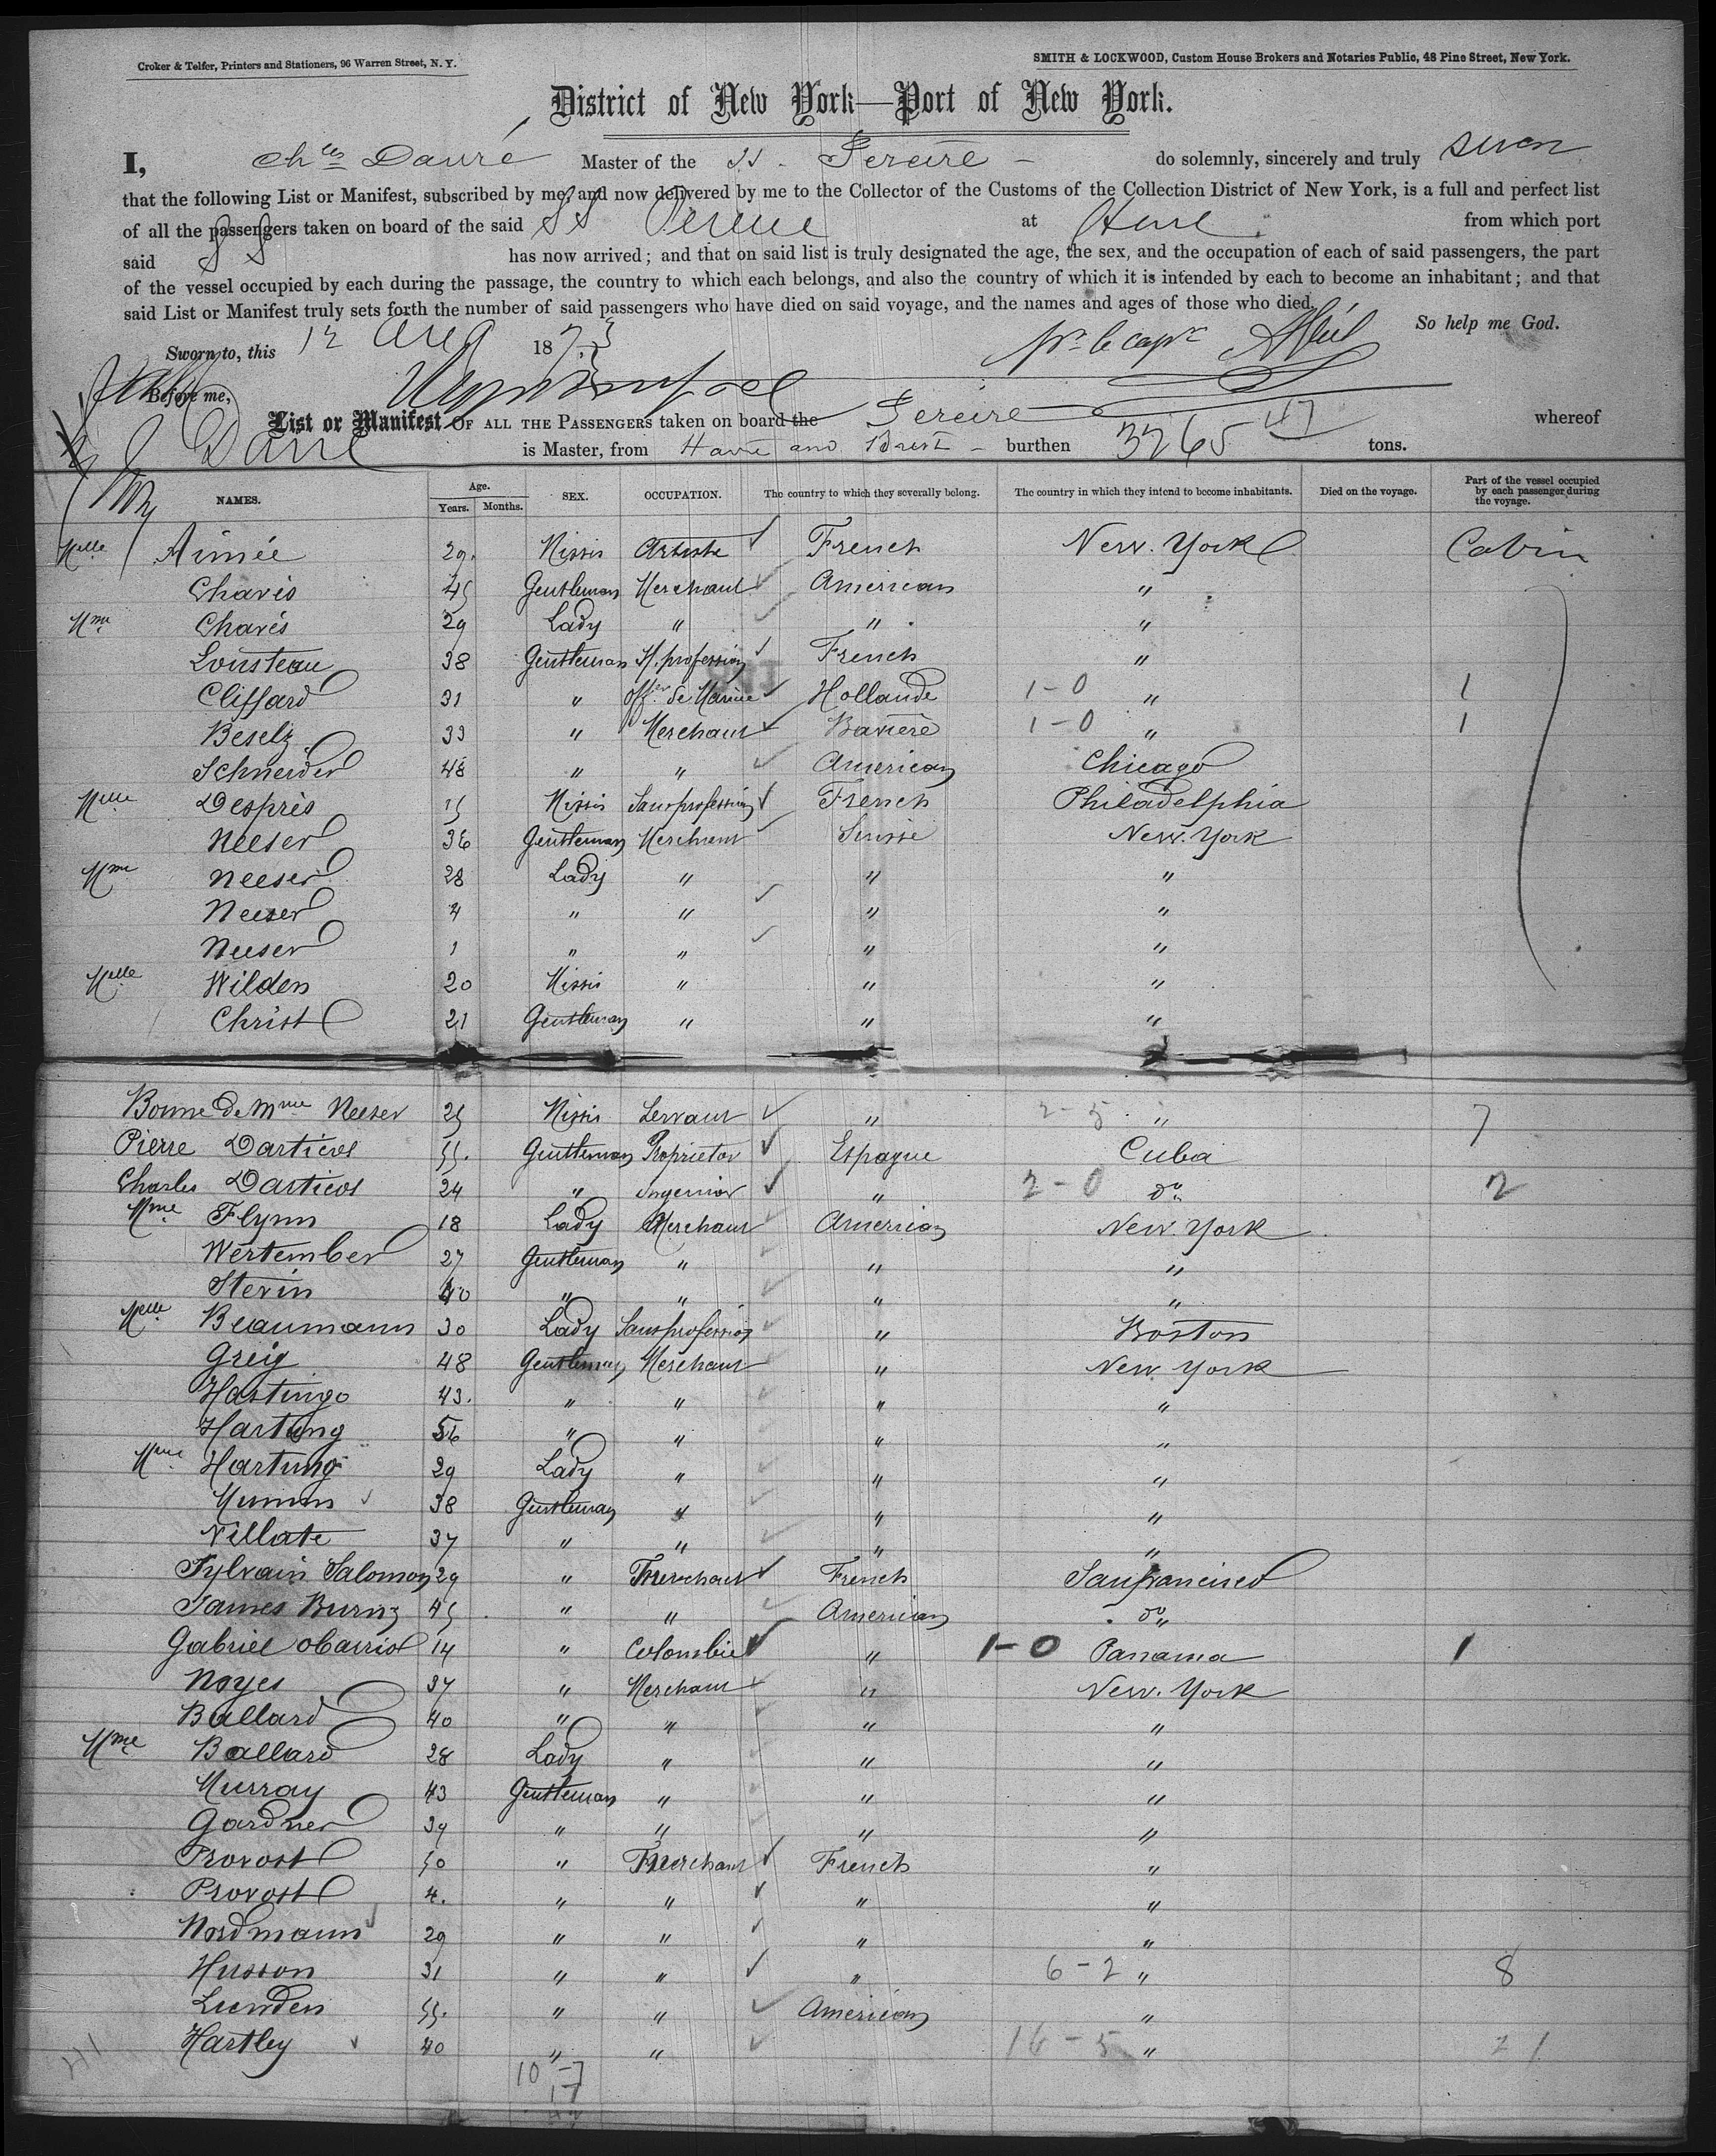 Croker & Telfer, Printers and Stationers, 96 Warren Street, N. Y.
SMITH & LOCKWOOD, Custom House Brokers and Notaries Public, 48 Pine Street, New York.
District of New York—Port of New York.
I, Ch les Dauré Master of the SS. Pereire - do solemnly, sincerely and truly
that the following List or Manifest, subscribed by me, and now delivered by me to the Collector of the Customs of the Collection District of New York, is a full and perfect list
of all the passengers taken on board of the said SS Pereire at Havre from which port
said SS has now arrived; and that on said list is truly designated the age, the sex, and the occupation of each of said passengers, the part
of the vessel occupied by each during the passage, the country to which each belongs, and also the country of which it is intended by each to become an inhabitant; and that
said List or Manifest truly sets forth the number of said passengers who have died on said voyage, and the names and ages of those who died.
So help me God.
Sworn to, this 12 Aug 1873
Before me,
List or Manifest OF ALL THE PASSENGERS taken on board the Pereire whereof
Dauré is Master, from Havre and Brest - burthen 3265 47 tons.
NAMES. Age. Years. Months. SEX. OCCUPATION. The country to which they severally belong. The country in which they intend to become inhabitants. Died on the voyage. Part of the vessel occupied by each passenger during the voyage.
Melle Aimée 29. Missis Artiste French New. York Cabin
Charis 45 Gentleman Merchant American "
Mme Charis 29 Lady " " "
Lousteau 38 Gentleman S. profession French "
Cliffard 31 " Offer de Marine Hollande 1-0 " 1
Beselz 33 " Merchant Bavière 1-0 " 1
Schneider 48 " " American Chicago
Melle Desprès 15 Missis Sans profession French Philadelphia
Neeser 36 Gentleman Merchant Suisse New. York
Mme Neeser 28 Lady " " "
Neeser 4 " " " "
Neeser 1 " " " "
Melle Wilden 20 Missis " " "
Christ 21 Gentleman " " "
Bonne de Mme Neeser 25 Missis Servant " 2-5 " 7
Pierre Darticos 55. Gentleman Proprietor Espagne Cuba
Charles Darticos 24 " Ingenior " 2-0 do 2
Mme Flynn 18 Lady Merchant American New. York
Wertember 27 Gentleman " " "
Sterin 40 " " " "
Melle Beaumann 30 Lady Sans profession " Boston
Greig 48 Gentleman Merchant " New York
Hastings 43. " " " "
Hartung 56 " " " "
Mme Hartung 29 Lady " " "
Mumm 38 Gentleman " " "
Villate 37 " " " "
Sylvain Salomon 29 " Merchant French Sanfrancisco
James Burns 45 " " American do
Gabriel Obarriol 14 " Colombie " 1-0 Panama 1
Noyes 37 " Merchant " New. York
Ballard 40 " " " "
Mme Ballard 28 Lady " " "
Murray 43 Gentleman " " "
Gardner 39 " " " "
Provost 50 " Merchant French "
Provost 4. " " " "
Nordmann 29 " " " "
Husson 31 " " " 6-2 " 8
Lunden 55. " " American "
Hartley 40 " " 16-5 " 21
41
10-7
17